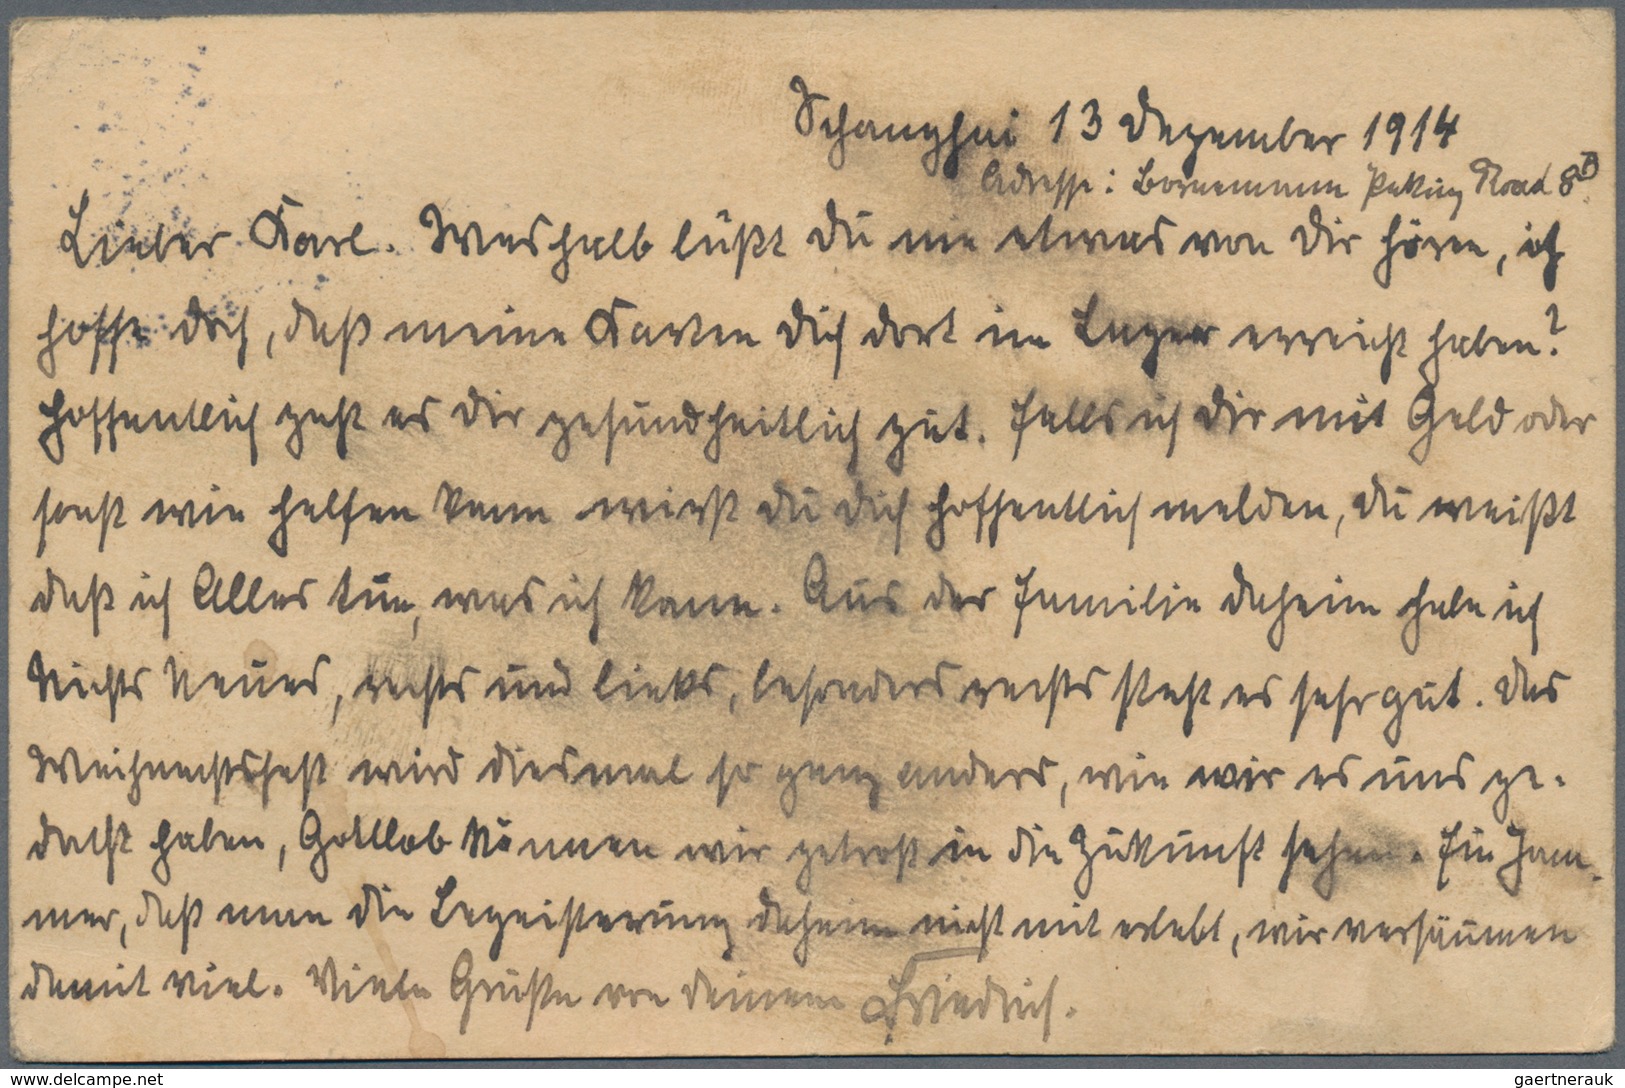 Schanghai 13 Dezember 1914
Adresse: Bornemann Peking Road 8B
Lieber Karl. Weshalb läßt Du nie etwas von Dir hören, ich
hoffe doch, daß meine Karten Dich dort im Lager erreicht haben?
Hoffentlich geht es Dir gesundheitlich gut. Falls ich Dir mit Geld oder
sonst wie helfen kann wirst Du Dich hoffentlich melden, Du weißt
daß ich Alles tue, was ich kann. Aus der Familie daheim habe ich
Nichts Neues, rechts und links, besonders rechts steht es sehr gut. Das
Weihnachtsfest wird diesmal so ganz anders, wie wir es uns ge-
dacht haben, Gottlob können wir getrost in die Zukunft sehen. Ein Jam-
mer, daß man die Begeisterung daheim nicht mit erlebt, wir versäumen
damit viel. Viele Grüße von deinem Friedrich.
delcampe.net
gaertnerauk